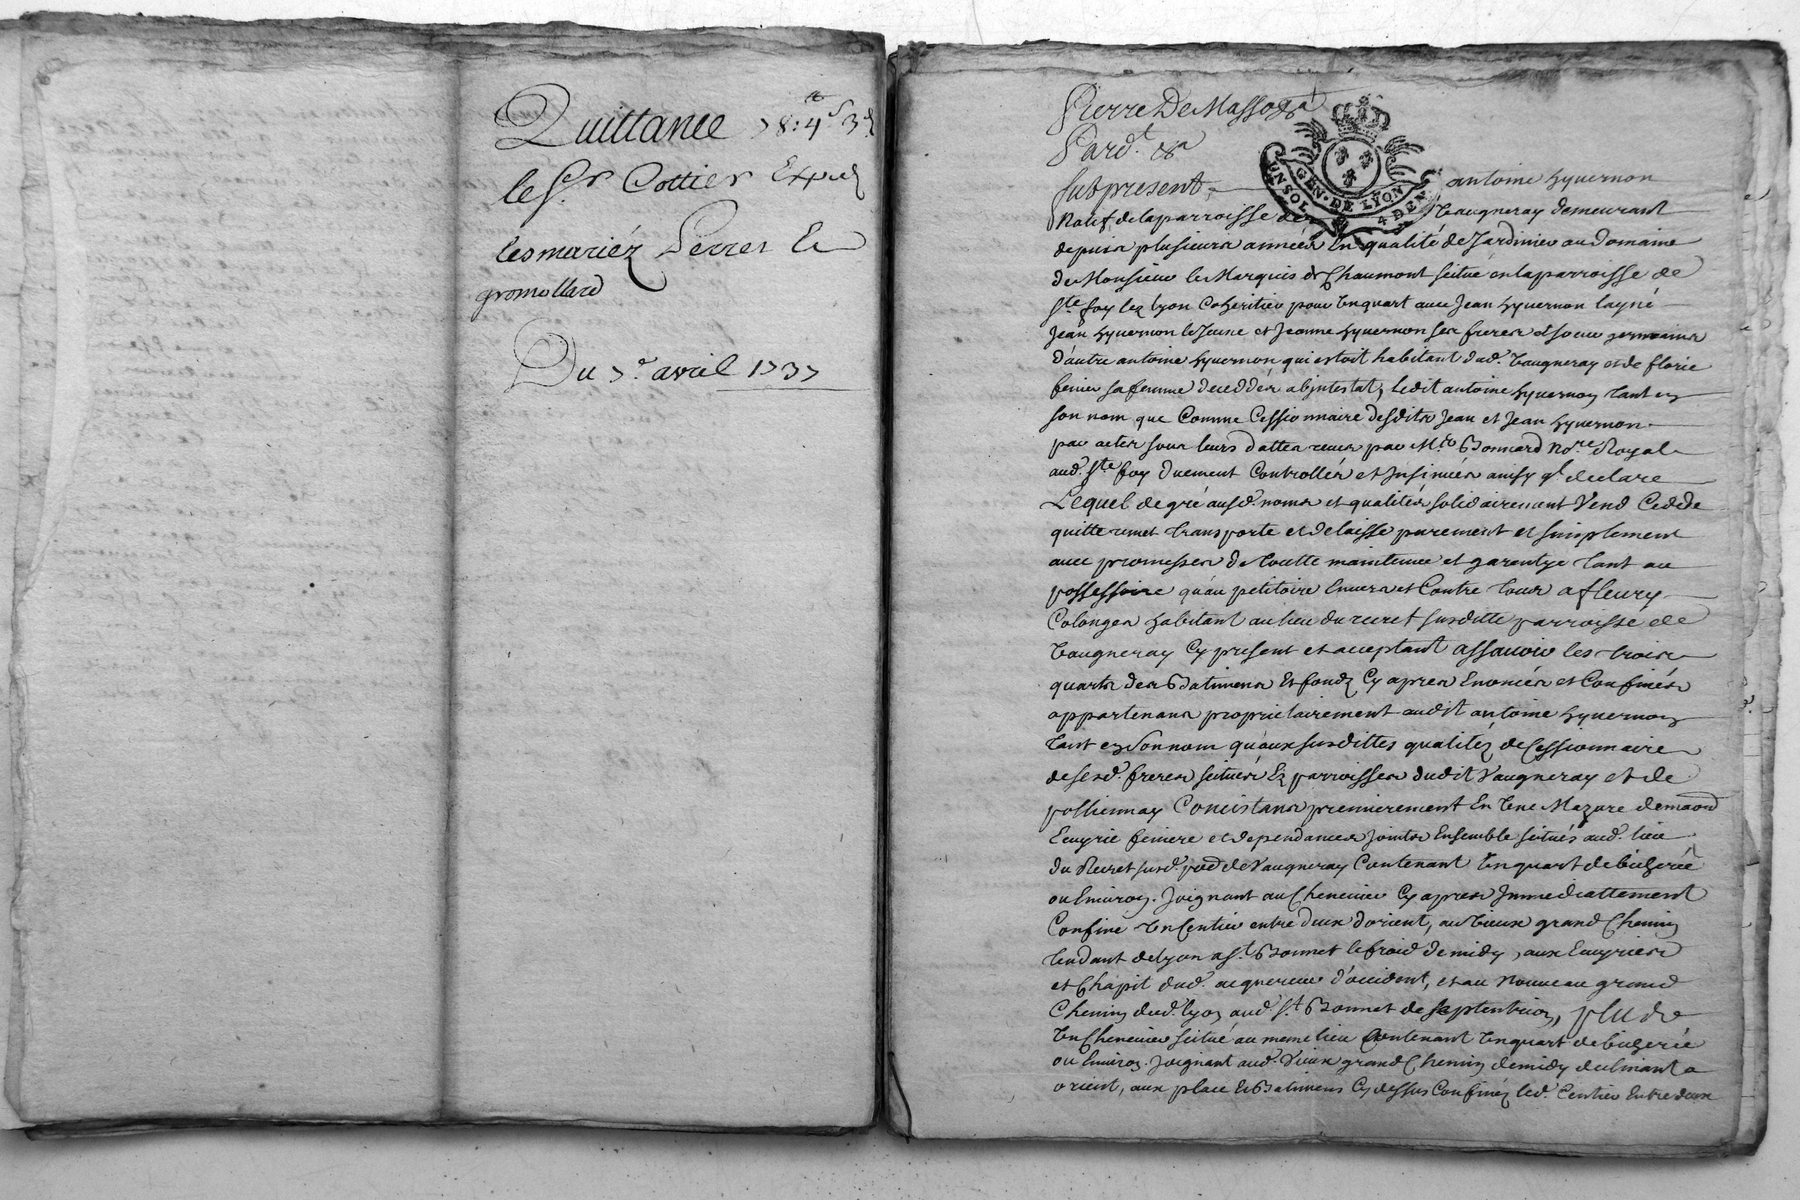 Quittance 78:4s 3d
le Sr. Cottier Expéd
les mariéz Perret Et
gromollard
Du 7e. avril 1737
Pierre De Masso &a
Pard.t &a
GEN. DE LYON
UN SOL 4 DEN
fut present, antoine hyvernon
Natif de la parroisse de Vaugneray demeurant
depuis plusieurs années En qualité de Jardinier au Domaine
de Monsieur le Marquis de Chaumont scitué en la parroisse de
Ste. foy lez Lyon Coheritier pour Un quart avec Jean hyvernon layné
Jean hyvernon le Jeune et Jeanne hyvernon ses freres et soeur germains
d'autre antoine hyvernon qui estoit habitant dud. Vaugneray et de florie
ferier sa femme deceddés abjntestat, ledit antoine hyvernon tant en
son nom que Comme Cessionnaire desdits Jean et Jean hyvernon
par actes sous leurs dattes receus par Me. Bonnard Nore. Royal
aud. Ste foy duement Controllés et Insinués ainsy ql declare
Lequel de gré ausd. noms et qualités solidairement Vend Cedde
quitte remet transporte et delaisse purement et simplement
avec promesses de toutte maintenue et garentye tant au
possessoire qu'au petitoire Envers et Contre tous a fleury
Colonges habitant au lieu du recret susditte parroisse de
Vaugneray Cy present et acceptant assavoir les trois
quarts des Batimens Et fondz Cy apres Enoncés et Confinés
appartenans proprietairement audit antoine hyvernon
tant en son nom qu'aux susdittes qualitez de Cessionnaire
de sesd. freres scitués Ez parroisses dudit Vaugneray et de
pollionnay Concistans premierement En Une Mazure de maison
Ecuyrie feniere et dependances joints Ensemble scitués aud. lieu
du Recret susd. parr. de Vaugneray Contenant Un quart de bicherée
ou Environ. Joignant au Chenevier Cy apres Immediattement
Confiné Un Sentier entre deux d'orient, au Vieux grand Chemin
tendant de Lyon a St. Bonnet le froid de midy, aux Ecuyries
et Chapit dud. acquereur d'occident, et au nouveau grand
Chemin dud. Lyon aud. St. Bonnet de septentrion, plus de
Un Chenevier scitué au meme lieu Contenant Un quart de bicherée
ou Environ. Joignant aud. Vieux grand Chemin de midy declinant a
orient, aux place Et Batimens Cy dessus Confinéz led. Sentier Entre deux